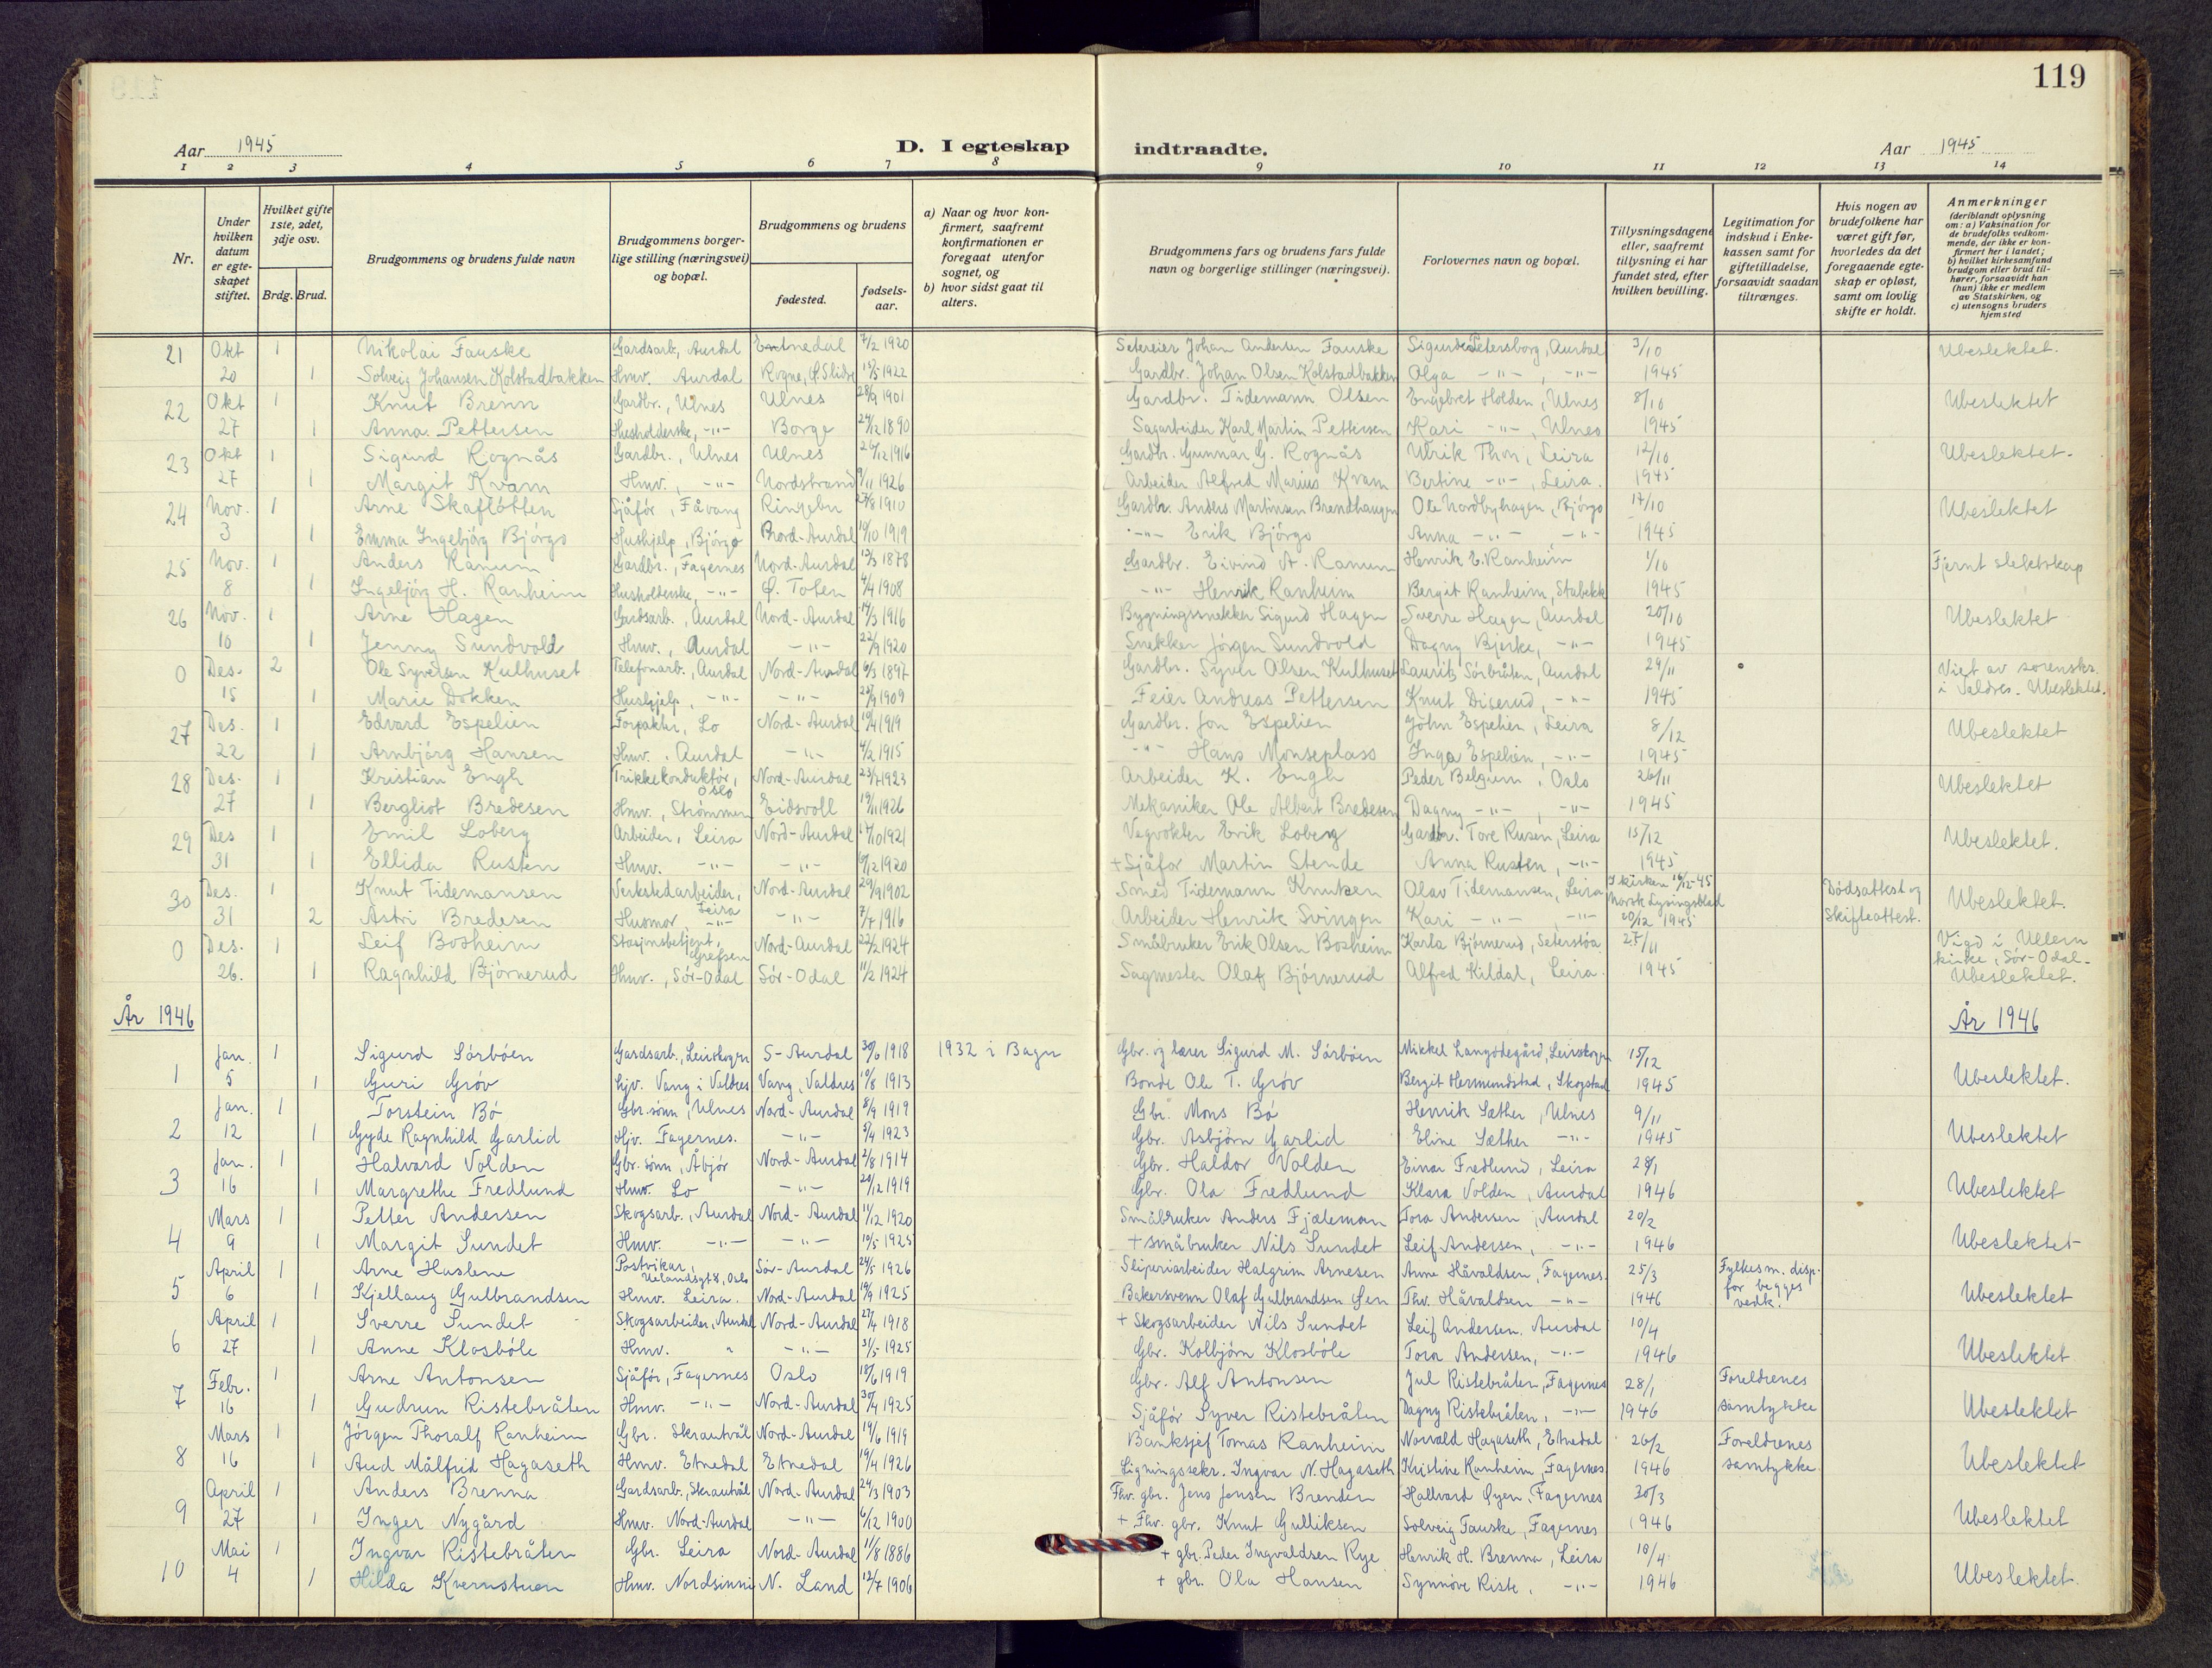 119
Aar 1945 D. I egteskap indtraadte. Aar 1945
1 2 3 4 5 6 7 8 9 10 11 12 13 14
Nr.
Under hvilken datum er egteskapet stiftet.
Hvilket gifte 1ste, 2det, 3dje osv.
Brdg. Brud.
Brudgommens og brudens fulde navn
Brudgommens borgerlige stilling (næringsvei) og bopæl.
Brudgommens og brudens
fødested.
fødselsaar.
a) Naar og hvor konfirmert, saafremt konfirmationen er foregaat utenfor sognet, og
b) hvor sidst gaat til alters.
Brudgommens fars og brudens fars fulde navn og borgerlige stillinger (næringsvei).
Forlovernes navn og bopæl.
Tillysningsdagene eller, saafremt tillysning ei har fundet sted, efter hvilken bevilling.
Legitimation for indskud i Enkekassen samt for giftetilladelse, forsaavidt saadan tiltrænges.
Hvis nogen av brudefolkene har været gift før, hvorledes da det foregaaende egteskap er opløst, samt om lovlig skifte er holdt.
Anmerkninger (deriblandt oplysning om: a) Vaksination for de brudefolks vedkommende, der ikke er konfirmert her i landet; b) hvilket kirkesamfund brudgom eller brud tilhører, forsaavidt han (hun) ikke er medlem av Statskirken, og c) utensogns bruders hjemsted
21 Okt 1 Nikolai Fauske Gardsarb., Aurdal Etnedal 7/2 1920 Setereier Johan Andersen Fauske Sigurd Petersborg, Aurdal 3/10 Ubeslektet.
20 1 Solveig Johansen Kolstadbakken Hmv. Aurdal Rogne, Ø. Slidre 1922 Gardbr. Johan Olsen Kolstadbakken Olga -"-, -"- 1945
22 Okt 1 Knut Brenn Gardbr., Ulnes Ulnes 28/9 1901 Gardbr. Tidemann Olsen Engebret Holden, Ulnes 8/10 Ubeslektet
27 1 Anna Pettersen Husholderske, -"- Borge 24/12 1890 Sagarbeider Karl Martin Pettersen Kari -"-, Ulnes 1945
23 Okt 1 Sigurd Rognås Gardbr., Ulnes Ulnes 26/12 1916 Gardbr. Gunnar G. Rognås Ulrik Thon, Leira 12/10 Ubeslektet.
27 1 Margit Kvam Hmv., -"- Nordstrand 9/11 1926 Arbeider Alfred Marius Kvam Bertine -"-, Leira. 1945
24 Nov. 1 Arne Skafløtten Sjåfør, Fåvang Ringebu 27/8 1910 Gardbr. Anders Martinsen Brendhaugen Ole Nordbyhagen, Bjørgo 17/10 Ubeslektet
3 1 Emma Ingebjørg Bjørgo Hushjelp, Bjørgo Nord-Aurdal 19/10 1919 -"- Erik Bjørgo Anna -"-, -"- 1945
25 Nov. 1 Anders Ranum Gardbr., Fagernes Nord-Aurdal 1878 Gardbr. Eivind A. Ranum Henrik E. Ranheim 1/10 Fjernt slektskap
8 1 Ingebjørg H. Ranheim Husholderske, -"- Ø. Toten 4/4 1908 -"- Henrik Ranheim Bergit Ranheim, Stabekk 1945
26 Nov. 1 Arne Hagen Gardsarb., Aurdal Nord-Aurdal 14/3 1916 Bygningssnekker Sigurd Hagen Sverre Hagen, Aurdal 20/10 Ubeslektet
10 1 Jenny Sundvold Hmv., Aurdal -"- 22/9 1920 Snekker Jørgen Sundvold Dagny Bjerke, -"- 1945
0 Des. 2 Ole Syversen Kulhuset Telefonarb., Aurdal Nord-Aurdal 6/3 1897 Gardbr. Syver Olsen Kulhuset Lauritz Sørbråten, Aurdal 29/11 Viet av sorenskr.
15 1 Marie Dokken Hushjelp, -"- -"- 1909 Feier Andreas Pettersen Knut Digerud, -"- 1945 i Valdres. Ubeslektet.
27 Des. 1 Edvard Espelien Forpakter, Lo Nord-Aurdal 19/4 1919 Gardbr. Jon Espelien John Espelien, Leira 8/12 Ubeslektet
22 1 Arnbjørg Hansen Hmv., Aurdal -"- 4/2 1915 -"- Hans Monseplass Inga Espelien, -"- 1945
28 Des. 1 Kristian Engh Trikkekonduktør, Oslo Nord-Aurdal 23/7 1923 Arbeider K. Engh Peder Belgum, Oslo 26/11 Ubeslektet
27 1 Bergliot Bredesen Hmv., Strømmen Eidsvoll 19/11 1926 Mekaniker Ole Albert Bredesen Dagny -"-, -"- 1945
29 Des 1 Emil Loberg Arbeider, Leira Nord-Aurdal 17/10 1921 Vegvokter Erik Loberg Gardbr. Tore Rusen, Leira 15/12 Ubeslektet.
31 1 Ellida Rusten Hmv. -"- -"- 1920 + Sjåfør Martin Stende Anna Rusten, -"- 1945
30 Des. 1 Knut Tidemansen Verkstedarbeider, Leira Nord-Aurdal 29/9 1902 Smed Tidemann Knutsen Olav Tidemansen, Leira I kirken 16/12-45 Norsk Lysingsblad Dødsattest og Ubeslektet.
31 2 Astri Bredesen Husmor -"- -"- 7/7 1916 Arbeider Henrik Svingen Kari -"- -"- 20/12 1945 Skifteattest.
0 Des. 1 Leif Bosheim Stasjonsbetjent, Grefsen Nord-Aurdal 22/2 1924 Småbruker Erik Olsen Bosheim Karla Bjørnerud, Seterstøa 27/11 Vigd i Ullern
26. 1 Ragnhild Bjørnerud Hmv., Sør-Odal Sør-Odal 11/2 1924 Sagmester Olaf Bjørnerud Alfred Kildal, Leira. 1945 kirke, Sør-Odal. Ubeslektet.
År 1946 År 1946
Jan. 1 Sigurd Sørbøen Gardsarb., Leirskogen S-Aurdal 30/6 1918 1932 i Bagn Gbr. og lærer Sigurd M. Sørbøen Mikkel Langødegård, Leirskogen 15/12
1 5 1 Guri Grøv Hjv. Vang i Valdres Vang, Valdres 10/8 1913 Bonde Ole T. Grøv Bergit Hermundstad, Skogstad 1945 Ubeslektet.
Jan. 1 Torstein Bø Gbr.sønn, Ulnes Nord-Aurdal 8/9 1919 Gbr. Mons Bø Henrik Sæther, Ulnes 9/11
2 12 1 Gyde Ragnhild Garlid Hjv. Fagernes. -"- 5/4 1923 Gbr. Asbjørn Garlid Eline Sæther -"- 1945 Ubeslektet
Jan. 1 Halvard Volden Gbr.sønn, Åbjør Nord-Aurdal 2/8 1914 Gbr. Haldor Volden Einar Fredlund, Leira 28/1
3 16 1 Margrethe Fredlund Hmv. Lo -"- 29/12 1919 Gbr. Ola Fredlund Klara Volden, Aurdal 1946 Ubeslektet
Mars 1 Petter Andersen Skogsarb., Aurdal Nord-Aurdal 11/12 1920 Småbruker Anders Fjæleman Tora Andersen, Aurdal 20/2
4 9 1 Margit Sundet Hmv. -"- -"- 10/5 1925 + småbruker Nils Sundet Leif Andersen, -"- 1946 Ubeslektet
April 1 Arne Haslene Postvikar, Uelandsgt 8, Oslo Sør-Aurdal 24/5 1926 Sliperiarbeider Halgrim Arnesen Anne Håvaldsen, Fagernes. 25/3 Fylkesm. disp.
5 6 1 Kjellaug Gulbrandsen Hmv. Leira. Nord-Aurdal 19/9 1925 Bakersvenn Olaf Gulbrandsen Øen Thv. Håvaldsen -"- 1946 for begges vedk. Ubeslektet
April 1 Sverre Sundet Skogsarbeider, Aurdal Nord-Aurdal 27/4 1918 + Skogsarbeider Nils Sundet Leif Andersen. Aurdal 10/4
6 27 1 Anne Klosbøle Hmv. " -"- 31/5 1925 Gbr. Kolbjørn Klosbøle Tora Andersen, -"- 1946 Ubeslektet
Febr. 1 Arne Antonsen Sjåfør, Fagernes Oslo 18/6 1919 Gbr. Alf Antonsen Jul Ristebråten, Fagernes 28/1 Foreldrenes
7 16 1 Gudrun Ristebråten Hmv. -"- Nord-Aurdal 30/4 1925 Sjåfør Syver Ristebråten Dagny Ristebråten, -"- 1946 samtykke Ubeslektet
Mars 1 Jørgen Thoralf Ranheim Gbr. Skrautvål Nord-Aurdal 19/6 1919 Banksjef Tomas Ranheim Norvald Hagaseth, Etnedal 26/2 Foreldrenes
8 16 1 Aud Målfrid Hagaseth Hmv. Etnedal Etnedal 19/4 1926 Ligningssekr. Ingvar N. Hagaseth Kristine Ranheim, Fagernes 1946 samtykke Ubeslektet
April 1 Anders Brenna Gardsarb., Skrautvål Nord-Aurdal 24/3 1903 Fhv. gbr. Jens Jensen Brenden Hallvard Øyen, Fagernes 30/3
9 27 1 Inger Nygård Hmv. Nord-Aurdal -"- 6/12 1900 + Fhv. gbr. Knut Gulliksen Solveig Fauske, Fagernes 1946 Ubeslektet
Mai 1 Ingvar Ristebråten Gbr. Leira Nord-Aurdal 11/8 1886 + gbr. Peder Ingvaldsen Rye Henrik H. Brenna, Leira 10/4
10 4 1 Hilda Kvernstuen Hmv. Nordsinni N. Land 12/7 1906 + gbr. Ola Hansen Synnøve Riste, -"- 1946 Ubeslektet.